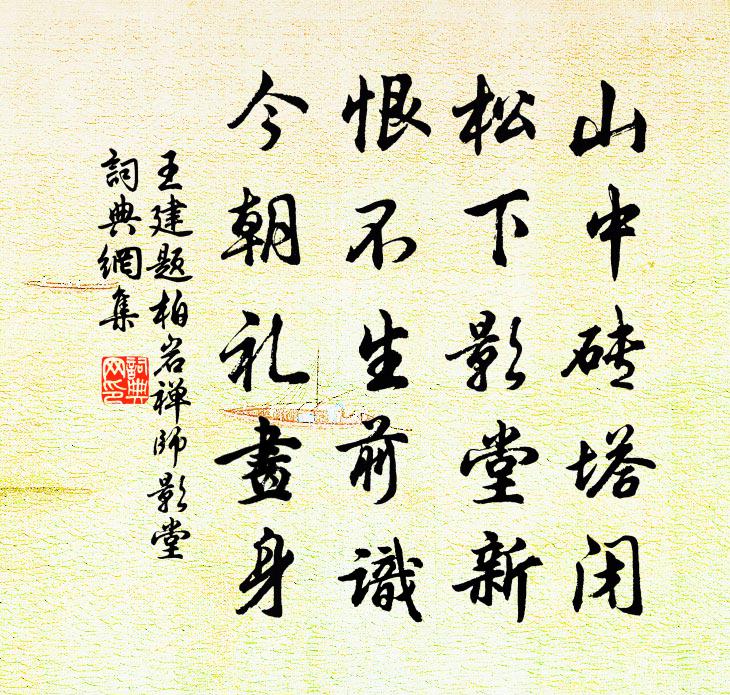 山中砖塔闭
松下影堂新
恨不生前識
今朝礼畫身
王建题柏岩禅师影堂
詞典網集
詞典网印